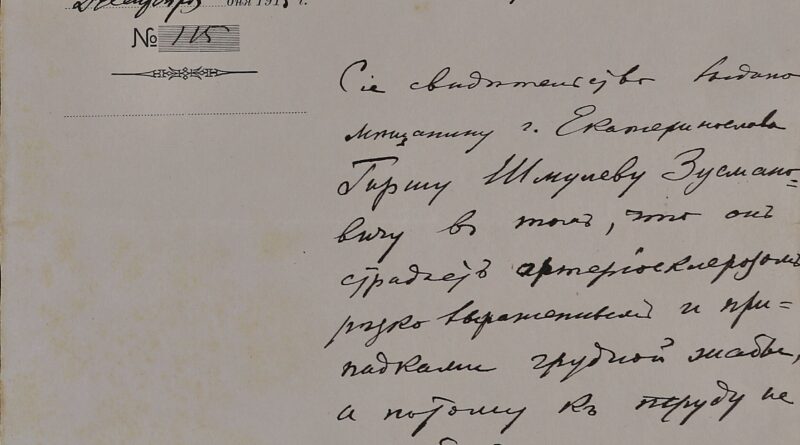 дня 191 г.
№ 115
Сіе свидѣтельство выдано
мѣщанину г. Екатеринослава
Гиршу Шмулеву Зусмано=
вичу въ томъ, что онъ
страдаетъ артеріосклерозомъ
рѣзко выраженнымъ и при=
падками грудной жабы,
а потому къ труду не